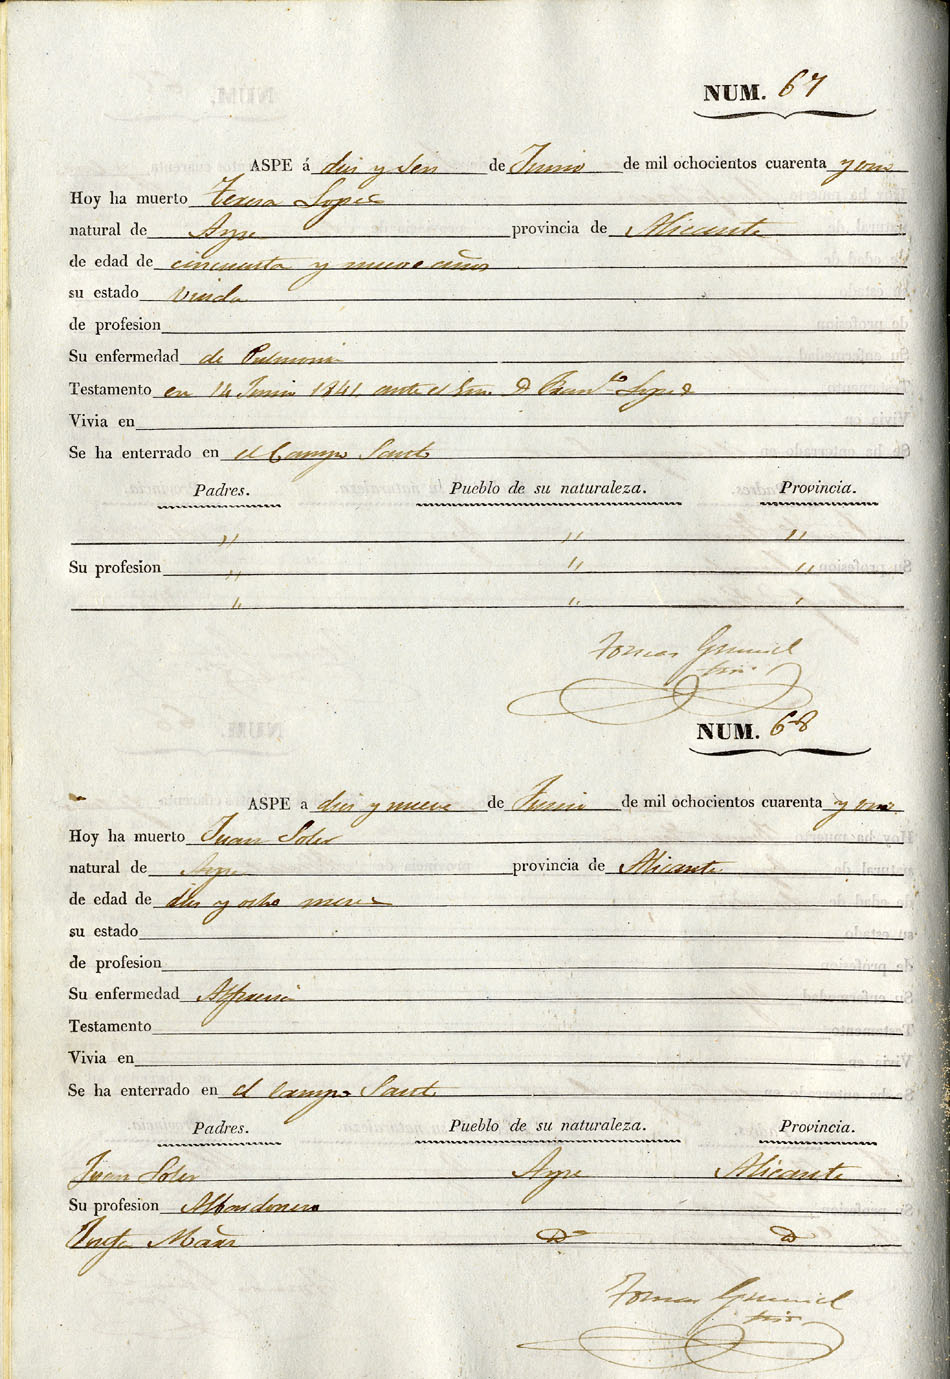 NUM. 67
ASPE á dies y seis de Junio de mil ochocientos cuarenta y uno
Hoy ha muerto Teresa Lopes
natural de Aspe provincia de Alicante
de edad de cincuenta y nueve años
su estado Viuda
de profesion
Su enfermedad de Pulmonia
Testamento en 14 Junio 1841 ante el Eno D Lopes
Vivia en
Se ha enterrado en el Campo Santo
Padres. Pueblo de su naturaleza. Provincia.
" " "
Su profesion " " "
" " "
Tomas
NUM. 68
ASPE a dies y nueve de Junio de mil ochocientos cuarenta y uno
Hoy ha muerto Juan Soler
natural de Aspe provincia de Alicante
de edad de dies y ocho meses
su estado
de profesion
Su enfermedad
Testamento
Vivia en
Se ha enterrado en el Campo Santo
Padres. Pueblo de su naturaleza. Provincia.
Juan Soler Aspe Alicante
Su profesion Albardonero
Josefa D D
Tomas